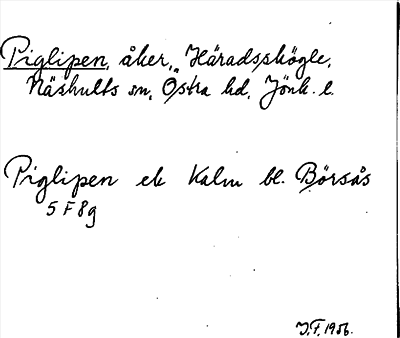 Piglipen, åker, Häradsskögle,
Näshults sn, Östra hd, Jönk. l.
Piglipen ek Kalm bl. Börsås
5 F 8 g
J.F. 1956.